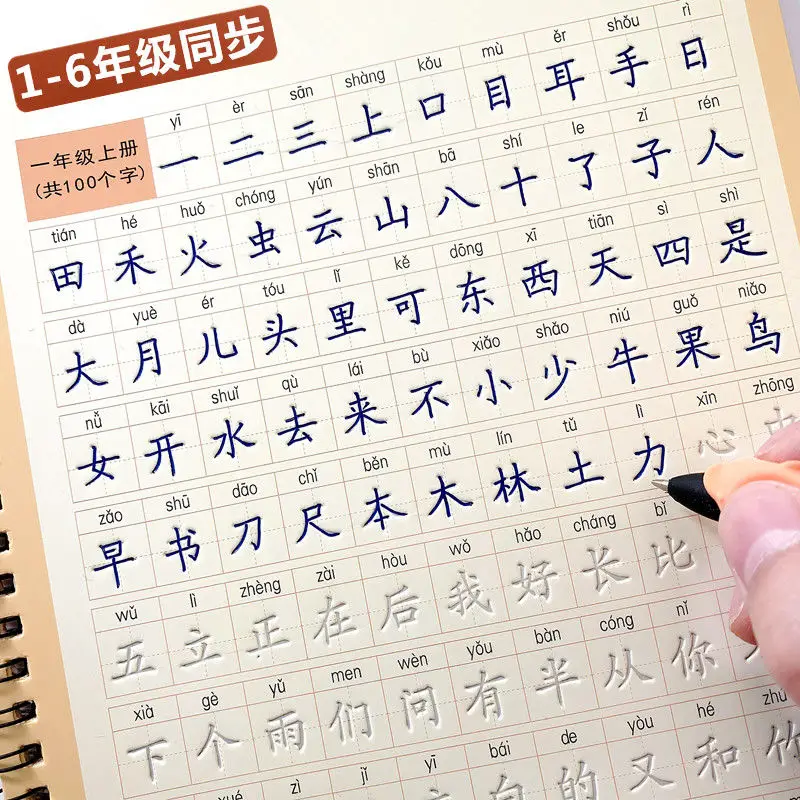 1-6年级同步
一年级上册
(共100个字)
yī èr sān shàng kǒu mù ěr shǒu rì
一 二 三 上 口 目 耳 手 日
tián hé huǒ chóng yún shān bā shí le zǐ rén
田 禾 火 虫 云 山 八 十 了 子 人
dà yuè ér tóu lǐ kě dōng xī tiān sì shì
大 月 儿 头 里 可 东 西 天 四 是
nǚ kāi shuǐ qù lái bù xiǎo shǎo niú guǒ niǎo
女 开 水 去 来 不 小 少 牛 果 鸟
zǎo shū dāo chǐ běn mù lín tǔ lì xīn zhōng
早 书 刀 尺 本 木 林 土 力 心
wǔ lì zhèng zài hòu wǒ hǎo cháng bǐ
五 立 正 在 后 我 好 长 比
xià gè yǔ men wèn yǒu bàn cóng nǐ
下 个 雨 们 问 有 半 从 你
xué zì jǐ yī bái de yòu hé zhú
白 的 又 和 竹